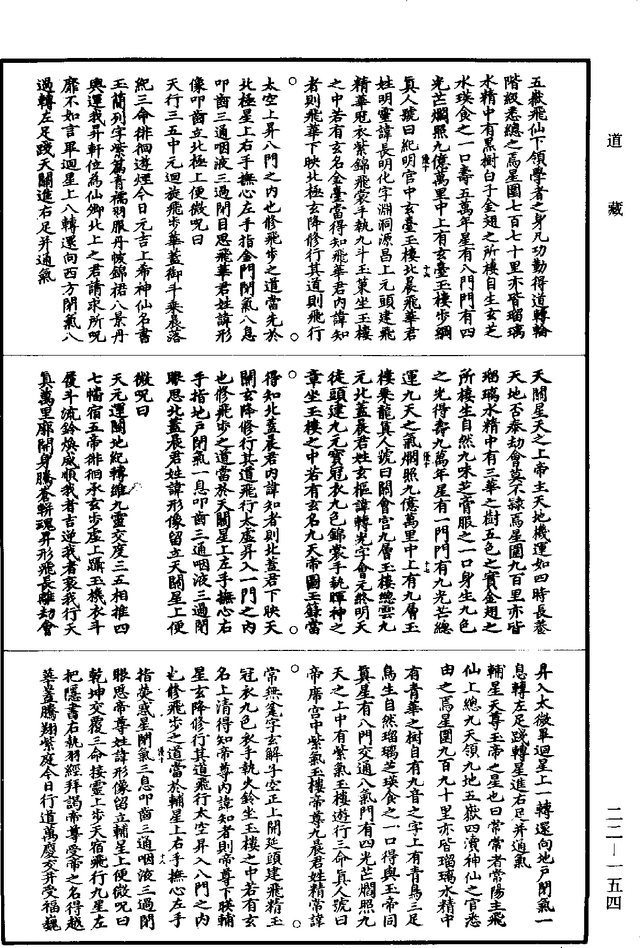 道藏
五嶽飛仙下領學者之身凡功勤得道轉輪
階級悉總之焉星圍七百七十里亦皆瑠璃
水精中有黑樹白子金翅之所棲自生玄芝
水瑛食之一口壽五萬年星有八門門有四
光芒爓照九億萬里中上有玄臺玉樓步綱
真人號曰紀明宮中玄臺玉樓北晨飛華君
姓明靈諱長明化字淵洞源昌上元頭建飛
精華冠衣紫錦飛裳手執九斗玉策坐玉樓
之中若有玄名金臺當得知飛華君內諱知
者則飛華下映北極玄降修行其道則飛行
太空上昇八門之內也修飛步之道當先於
北極星上右手撫心左手指金門閉氣八息
叩齒三通咽液三過閉目思飛華君姓諱形
像叩齒立北極上便微呪曰
天行三五中元迴旋飛步華蓋御千乘晨落
紀三命徘徊遊煙今日元吉上希神仙名書
玉簡列字紫篇青襦羽服丹帔錦裙八景丹
輿運我昇軒位為仙卿北上之君請求所呪
靡不如言畢迴星上八轉還向西方閉氣八
過轉左足踐天關進右足并通氣
天關星天之上帝主天地機運如四時長養
天地否泰劫會莫不隸焉星圍九百里亦皆
瑠璃水精中有三華之樹五色之寶金翅之
所棲生自然九味芝膏服之一口身生九色
之光得壽九萬年星有一門門有九光芒總
運九天之氣爓照九億萬里中上有九層玉
樓乘龍真人號曰關會宮九層玉樓總雲九
元北蓋晨君姓玄樞諱轉光字會元終明天
徒頭建九元寶冠衣九色錦裳手執暉神之
章坐玉樓之中若有玄名九天帝圖玉籙當
得知北蓋晨君內諱知者則北蓋君下映天
關玄降修行其道飛行太虛昇入一門之內
也修飛步之道當於天關星上左手撫心右
手指地戶閉氣一息叩齒三通咽液三過閉
眼思北蓋晨君姓諱形像留立天關星上便
微呪曰
天元運關地紀轉維九靈交度三五相推四
七幡宿五帝徘徊承玄步虛上躡玉機衣斗
履斗流鈴煥威順我者吉逆我者衰我行天
真萬里廓開身騰蒼軿魂昇形飛長離劫會
昇入太微畢迴星上一轉還向地戶閉氣一
息轉左足踐轉星進右足并通氣
輔星天尊玉帝之星也曰常常者常陽主飛
仙上總九天領九地五嶽四瀆神仙之官悉
由之焉星圍九百九十里亦皆瑠璃水精中
有青華之樹自有九音之字上有青鳥三足
鳥生自然瑠璃芝瑛食之一口得與玉帝同
真星有八門交通八氣門有四光芒爓照九
天之上中有紫氣玉樓遊行三命真人號曰
帝席宮中紫氣玉樓帝尊九晨君姓精常諱
常無筵字玄解子空正上開延頭建飛精玉
冠衣九色衣手執火鈴坐玉樓之中若有玄
名上清得知帝尊內諱知者則帝尊下映輔
星玄降修行其道飛行太空昇入八門之內
也修飛步之道當於輔星上右手撫心左手
指熒惑星閉氣三息叩齒三通咽液三過閉
眼思帝尊姓諱形像留立輔星上便微呪曰
乾坤交覆三命接靈上步天宿飛行九星左
把隱書右執羽經拜謁帝尊受帝之名得越
華蓋騰翔紫庭今日行道萬慶交并受福巍
二二—一五四